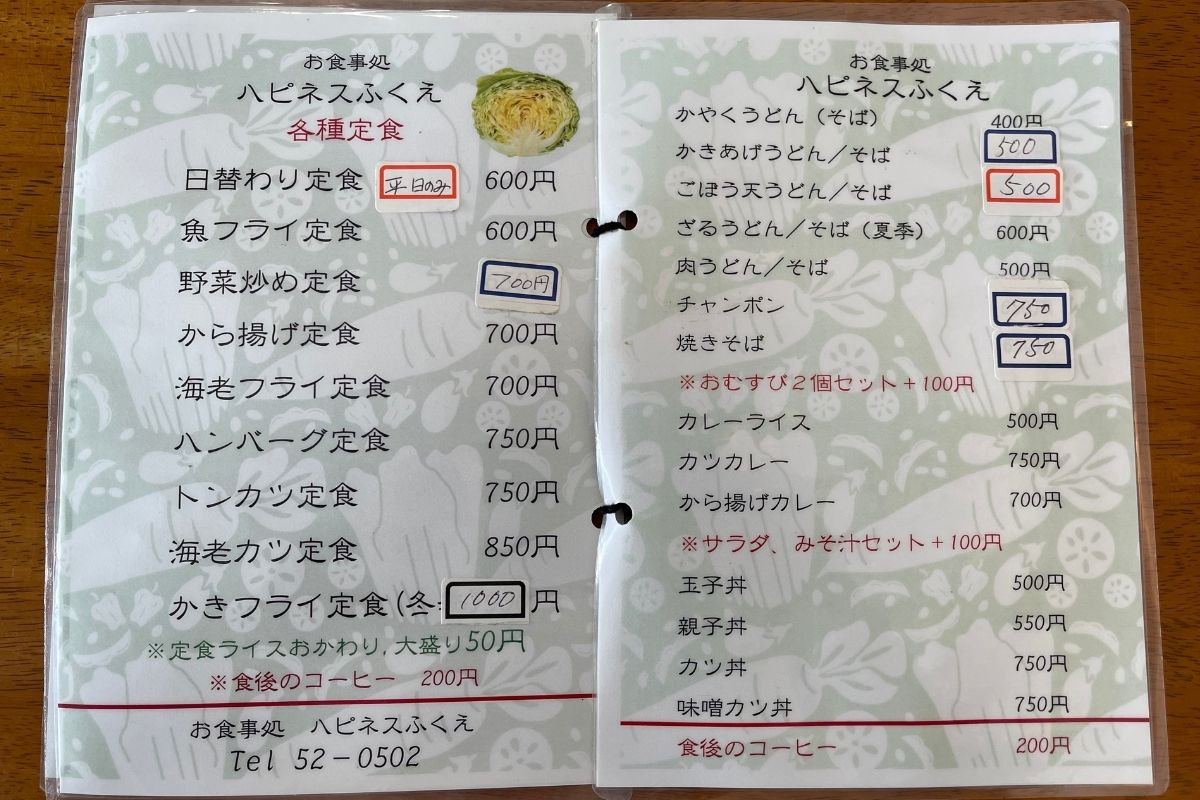 お食事処
ハピネスふくえ
各種定食
日替わり定食 平日のみ 600円
魚フライ定食 600円
野菜炒め定食 700円
から揚げ定食 700円
海老フライ定食 700円
ハンバーグ定食 750円
トンカツ定食 750円
海老カツ定食 850円
かきフライ定食(冬 1000 円
※定食ライスおかわり,大盛り50円
※食後のコーヒー 200円
お食事処 ハピネスふくえ
Tel 52-0502
お食事処
ハピネスふくえ
かやくうどん(そば) 400円
かきあげうどん/そば 500
ごぼう天うどん/そば 500
ざるうどん/そば(夏季) 600円
肉うどん/そば 500円
チャンポン 750
焼きそば 750
※おむすび2個セット+100円
カレーライス 500円
カツカレー 750円
から揚げカレー 700円
※サラダ、みそ汁セット+100円
玉子丼 500円
親子丼 550円
カツ丼 750円
味噌カツ丼 750円
食後のコーヒー 200円